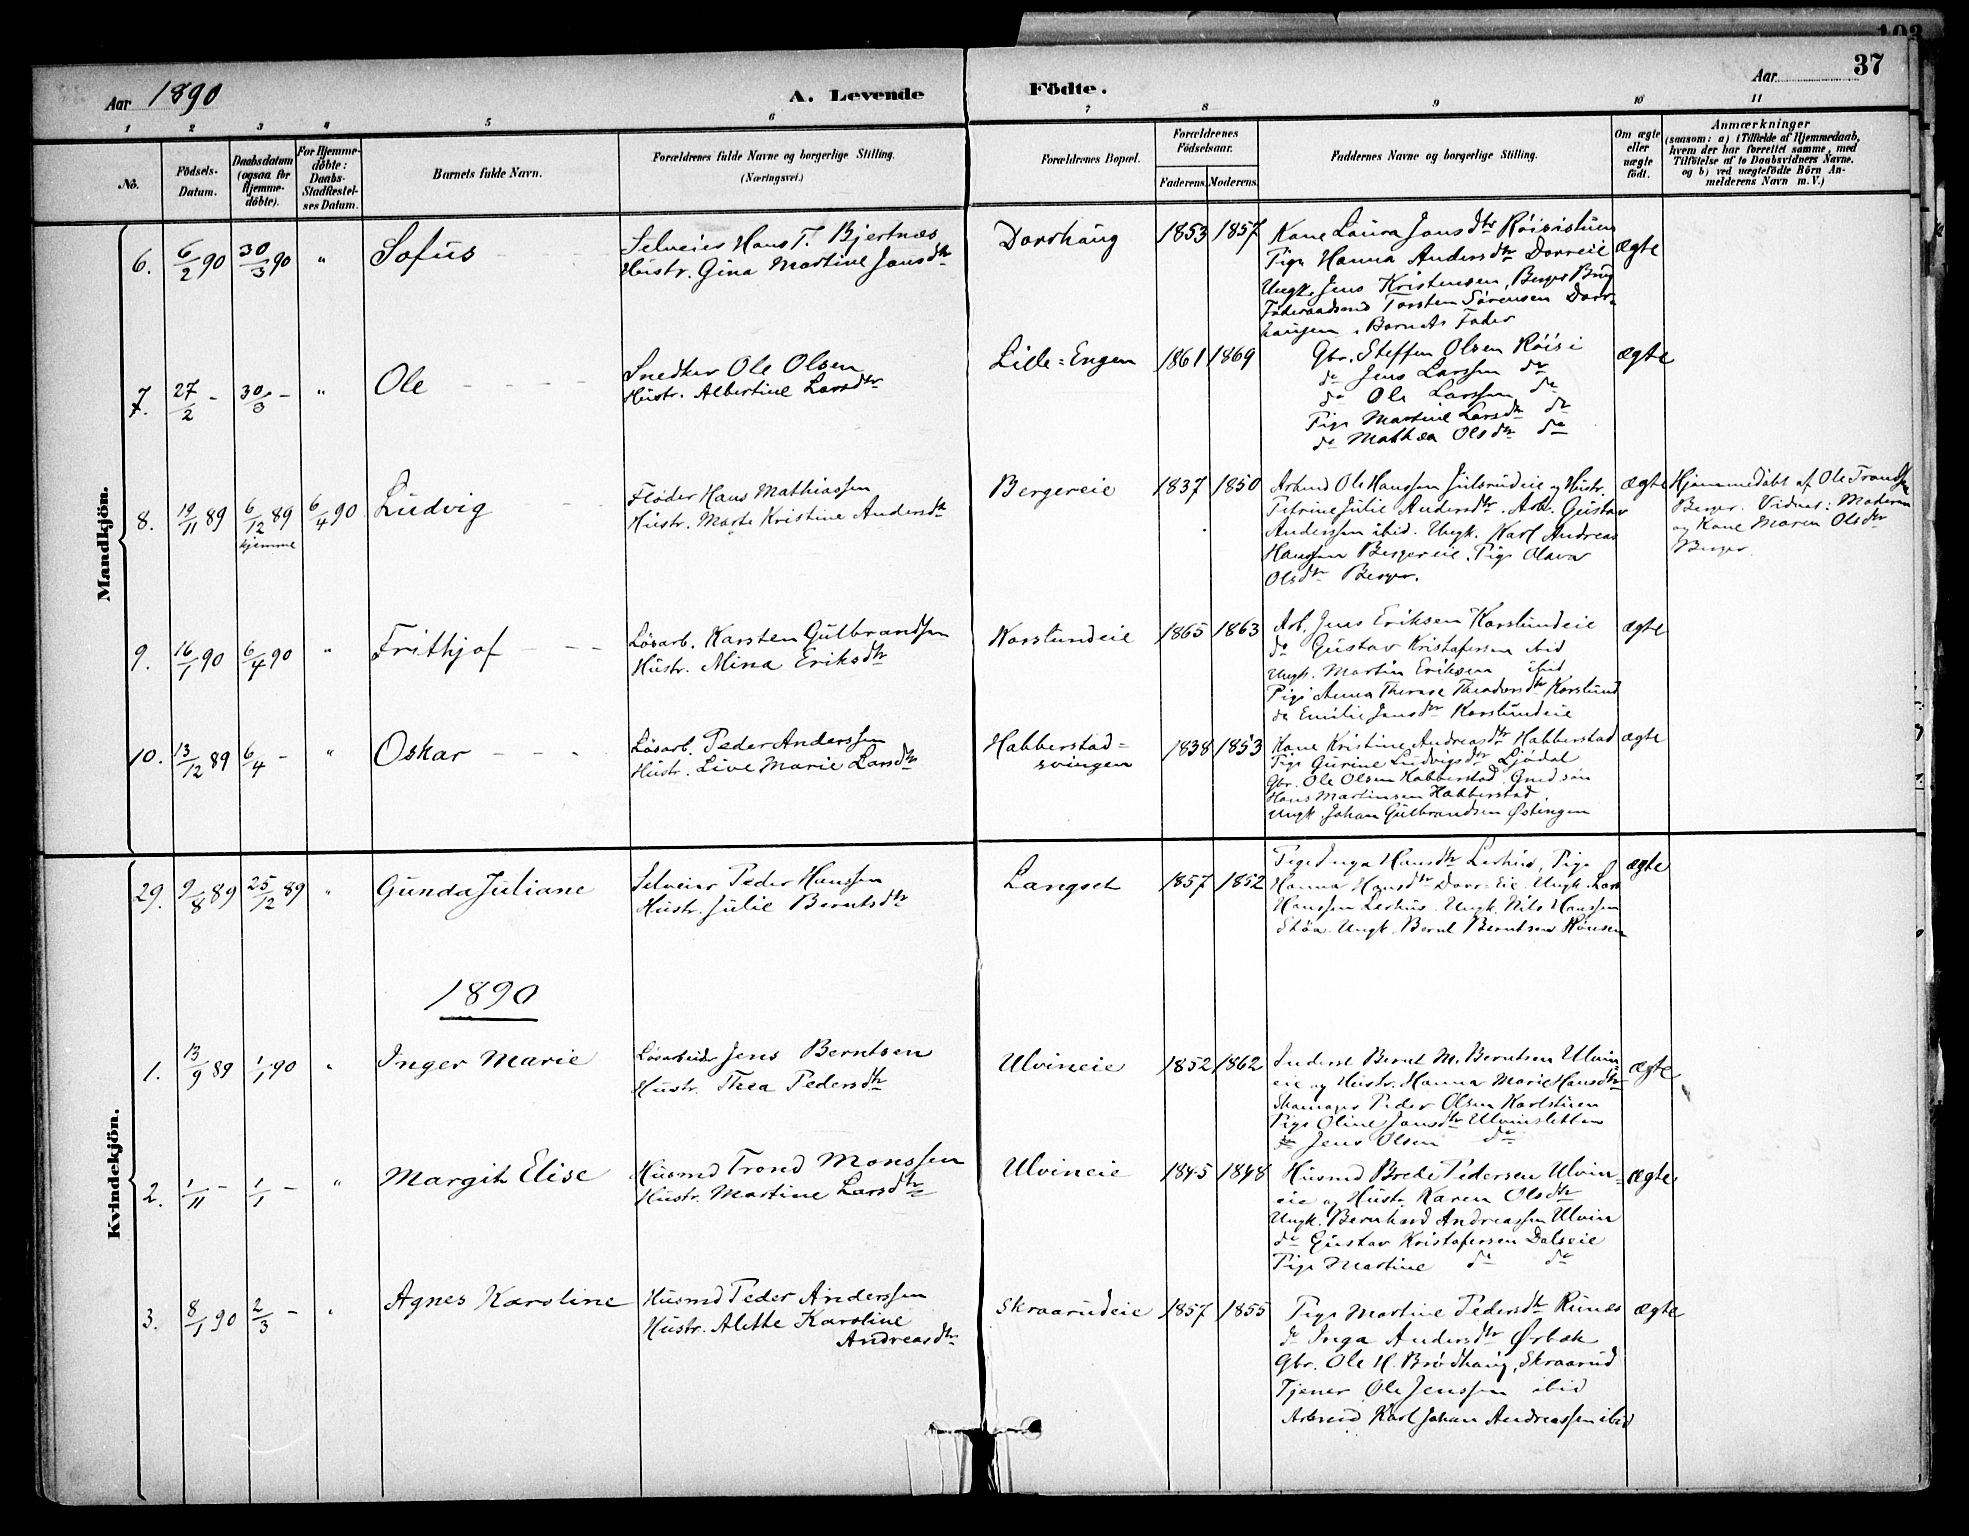 Aar 1890
A. Levende
Födte.
Aar
37
1 2 3 4 5 6 7 8 9 10 11
No.
Födsels-Datum.
Daabsdatum (ogsaa for Hjemmedöbte).
For Hjemmedöbte: Daabs-Stadfæstelses Datum.
Barnets fulde Navn.
Forældrenes fulde Navne og borgerlige Stilling.
(Næringsvei.)
Forældrenes Bopæl.
Forældrenes Födselsaar.
Faderens. Moderens.
Faddernes Navne og borgerlige Stilling.
Om ægte eller uægte født.
Anmærkninger
(saasom: a) i Tilfælde af Hjemmedaab, hvem der har forrettet samme, med Tilföielse af to Daabsvidners Navne, og b) ved uægtefödte Börn Anmelderens Navn m. V.)
Mandkjön.
6. 6/2 90 30/3 90 " Sofus
Selveier Hans T. Bjertnæs
Hustr. Gina Martine Jensdtr
Dorrhaug 1853 1857
Kone Laura Jonsdtr
Pige Hanna Andersdtr Dorreie
Ungk. Jens Kristensen, Berger Brug
Föderaadsmd Torsten Sörensen Dorr-
haugen, Barnets Fader
ægte
7. 27/2 - 30/3 - " Ole
Snedker Ole Olsen
Hustr. Albertine Larsdtr
Lille-Engen 1861 1869
Gbr. Steffen Olsen Röisi
do Jens Larssen do
do Ole Larssen do
Pige Martine Larsdtr do
do Mathea Olsdtr do
ægte
8. 19/11 89 6/12 89 hjemme 6/4 90 Ludvig
Fløder Hans Mathiassen
Hustr. Marte Kristine Andersdtr
Bergereie 1837 1850
Arbmd Ole Hanssen Julsrudeie og Hustr.
Petrine Julie Andersdtr. Arb. Gustav
Anderssen ibid. Ungk. Karl Andreas
Hanssen Bergereie. Pige Olava
Olsdtr Berger.
ægte
Hjemmedöbt af Ole
Berger. Vidner: Moderen
og Kone Maren Olsdtr
Berger.
9. 16/1 90 6/4 90 " Frithjof
Løsarb. Karsten Gulbrandsen
Hustr. Mina Eriksdtr
Korslundeie 1865 1863
Arb. Jens Eriksen Korslundeie
do Gustav Kristofersen ibid
Ungk. Martin Eriksen ibid
Pige Anna Therese Theodorsdtr Korslund
do Emilie Jensdtr Korslundeie
ægte
10. 13/12 89 6/4 - " Oskar
Løsarb. Peder Anderssen
Hustr. Live Marie Larsdtr
Habberstad-
svingen
1838 1853
Kone Kristine Andreasdtr Habberstad
Pige Gurine Ludvigsdtr Ljødal
Gbr. Ole Olsen Habberstad. Grmd.søn
Hans Martinsen Habberstad
Ungk. Johan Gulbrandsen Østingen
ægte
Kvindekjön.
29. 9/8 89 25/12 89 " Gunda Juliane
Selveier Peder Hanssen
Hustr. Julie Berntsdtr
Langset 1857 1852
Pige Inga Hansdtr Lerhus, Pige
Hanna Hansdtr Dorr-Eie. Ungk. Lars
Hanssen Lerhus. Ungk. Nils Hanssen
Støa. Ungk. Bernt Berntsen
ægte
1890
1. 13/9 89 1/1 90 " Inger Marie
Løsarbeider Jens Berntsen
Hustr. Thea Pedersdtr
Ulvineie 1852 1862
Inderst Bernt M. Berntsen Ulvin-
eie og Hustr. Hanna Marie Hansdtr
Skomager Peder Olsen Karlstuen
Pige Oline Jensdtr Ulvinsletten
Jens Olsen do
ægte
2. 1/11 - 1/1 - " Margit Elise
Husmd Trond Monssen
Hustr. Martine Larsdtr
Ulvineie 1845 1848
Husmd Brede Pedersen Ulvin-
eie og Hustr Karen Olsdtr
Ungk. Bernhard Andreassen Ulvin
do Gustav Kristofersen Dalseie
Pige Martine do do
ægte
3. 8/1 90 2/3 - " Agnes Karoline
Husmd Peder Anderssen
Hustr. Alette Karoline
Andreasdtr
Skraarudeie 1857 1855
Pige Martine Pedersdtr Runæs
do Inga Andersdtr Ørbæk
Gbr. Ole H. Brødhaug, Skraarud
Tjener Ole Jenssen ibid
Arbmd Karl Johan Andreassen ibid
ægte